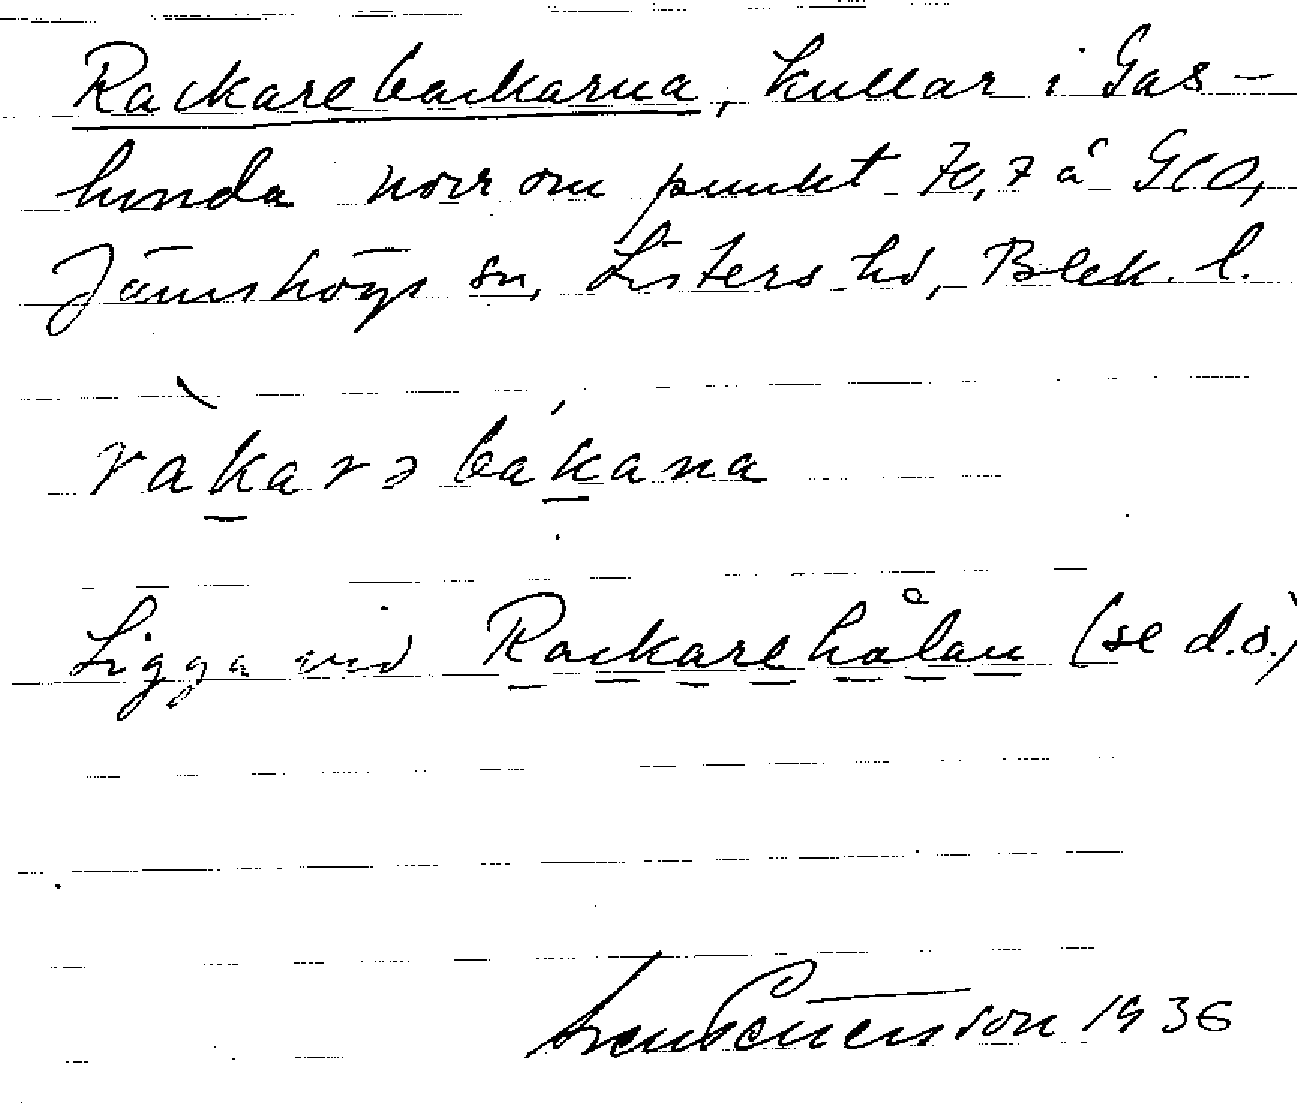 Rackarebackarna, kullar i Gas-
hunda norr om punkt 70,7 å GCO,
Jämshögs sn, Listers hd, Blek. l.
ràkarə bákana
Ligga vid Rackarehålan (se d.o.)
Sven Benson 1936